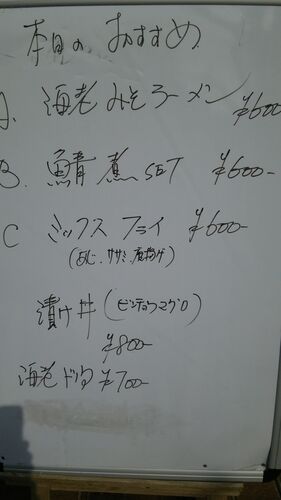 本日のおすすめ
A. 海老みそラーメン ¥600
B. 鯖煮 SET ¥600-
C ミックスフライ ¥600-
(あじ、ササミ、唐揚げ)
漬け丼(ビンチョウマグロ)
¥800-
海老ドリア ¥700-